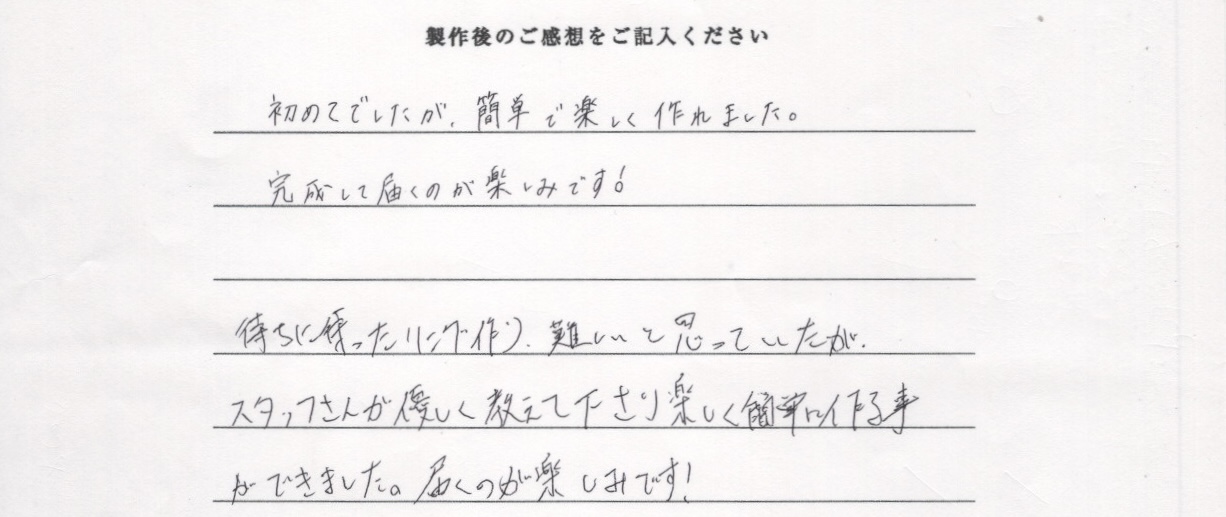 製作後のご感想をご記入ください
初めてでしたが、簡単で楽しく作れました。
完成して届くのが楽しみです!
待ちに待ったリング作り、難しいと思っていたが、
スタッフさんが優しく教えて下さり楽しく簡単に作る事
ができました。届くのが楽しみです!